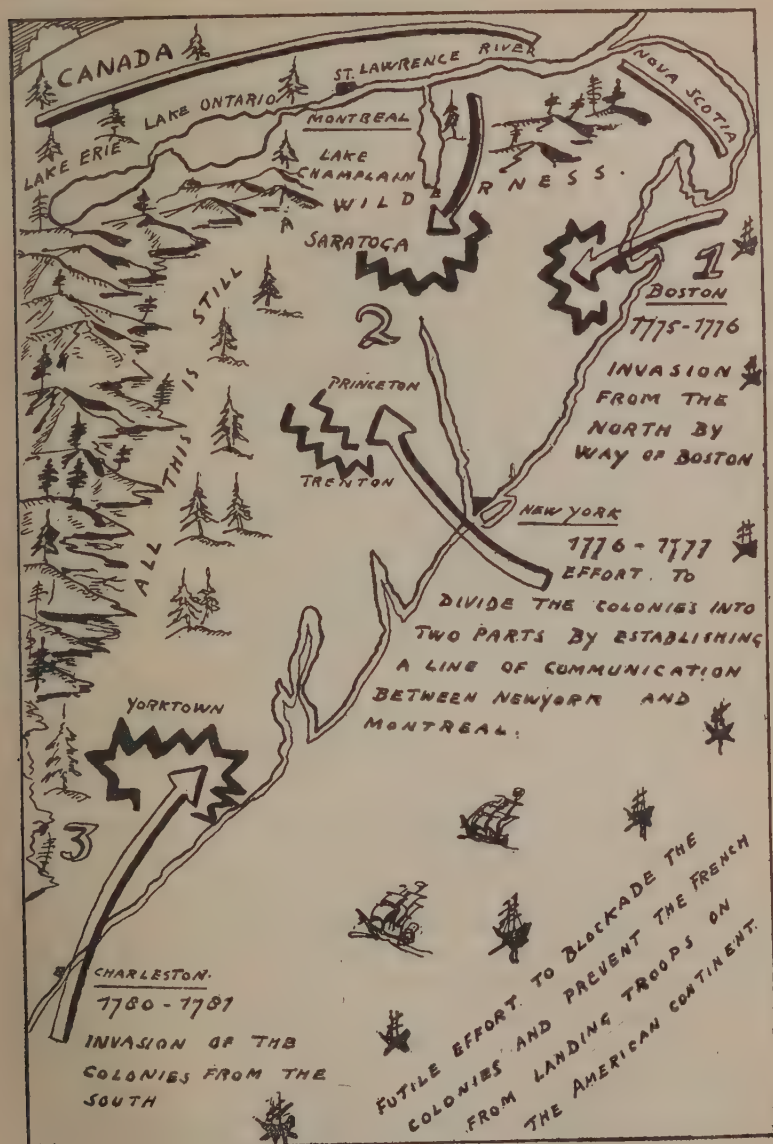 CANADA
ST. LAWRENCE RIVER
NOVA SCOTIA
LAKE ONTARIO
MONTREAL
LAKE ERIE
LAKE
CHAMPLAIN
WILDERNESS.
SARATOGA
1
BOSTON
1775-1776
INVASION
FROM THE
NORTH BY
WAY OF BOSTON
2
ALL THIS IS STILL
PRINCETON
TRENTON
NEW YORK
1776-1777
EFFORT. TO
DIVIDE THE COLONIES INTO
TWO PARTS BY ESTABLISHING
A LINE OF COMMUNICATION
BETWEEN NEWYORK AND
MONTREAL.
YORKTOWN
3
CHARLESTON.
1780-1781
INVASION OF THE
COLONIES FROM THE
SOUTH
FUTILE EFFORT TO BLOCKADE THE
COLONIES AND PREVENT THE FRENCH
FROM LANDING TROOPS ON
THE AMERICAN CONTINENT.